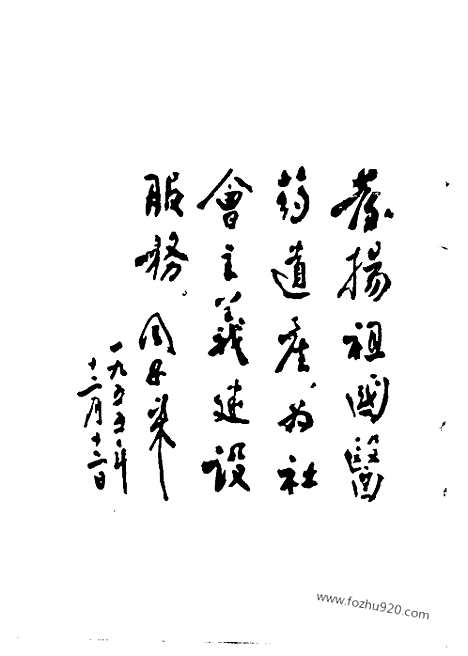 發揚祖國醫
药遺產，为社
會主義建設
服務。周恩來
一九五五年
十二月十二日
www.fozhu920.com